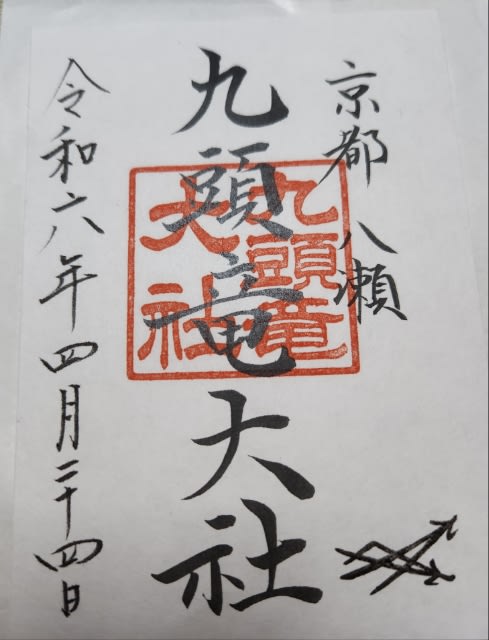 京都 八瀬
九頭竜大社
九頭竜
大社
令和六年四月二十四日